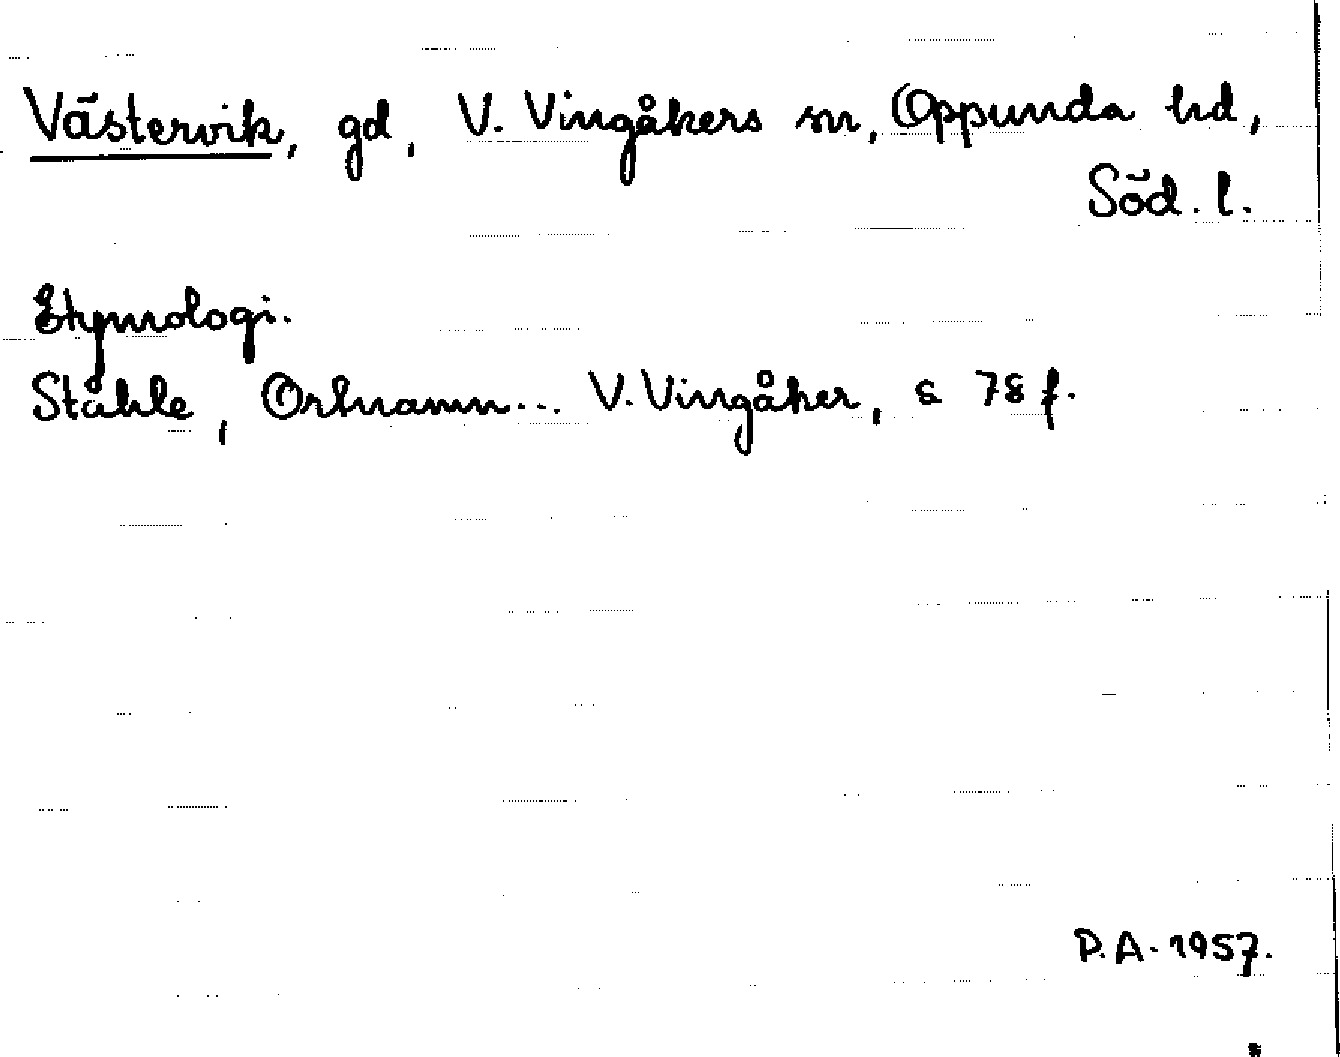 Västervik, gd, V. Vingåkers sn, Oppunda hd,
Söd. l.
Etymologi.
Ståhle, Ortnamn... V. Vingåker, s 78 f.
P.A. 1957.